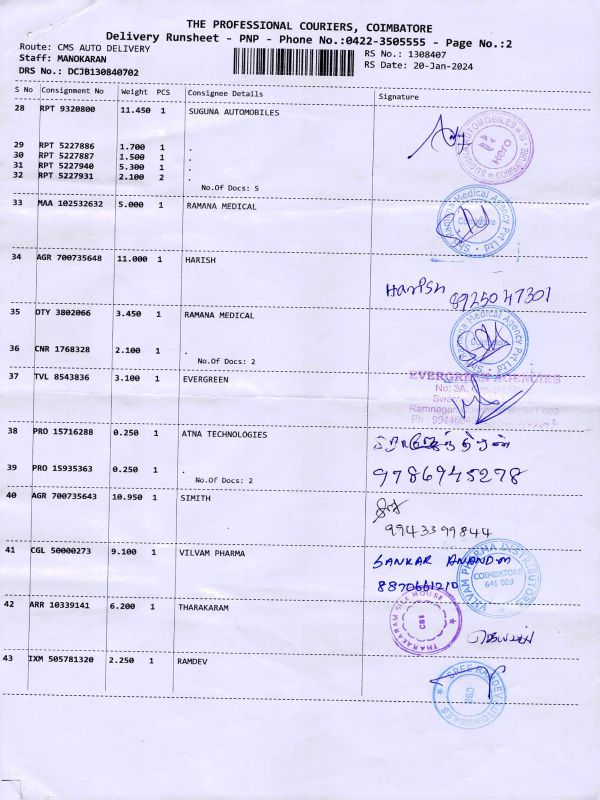 THE PROFESSIONAL COURIERS, COIMBATORE
Delivery Runsheet - PNP - Phone No.:0422-3505555 - Page No.:2
Route: CMS AUTO DELIVERY
RS No.: 1308407
Staff: MANOKARAN
RS Date: 20-Jan-2024
DRS No.: DCJB130840702
S No Consignment No Weight PCS Consignee Details Signature
28 RPT 9320800 11.450 1 SUGUNA AUTOMOBILES
29 RPT 5227886 1.700 1 .
30 RPT 5227887 1.500 1 .
31 RPT 5227940 5.300 1 .
32 RPT 5227931 2.100 2 .
No.Of Docs: 5
33 MAA 102532632 5.000 1 RAMANA MEDICAL
34 AGR 700735648 11.000 1 HARISH
Harish 8925047301
35 OTY 3802066 3.450 1 RAMANA MEDICAL
36 CNR 1768328 2.100 1 .
No.Of Docs: 2
37 TVL 8543836 3.100 1 EVERGREEN
EVERGREEN AGENCIES
No: 3A,
Ramnagar
38 PRO 15716288 0.250 1 ATNA TECHNOLOGIES
39 PRO 15935363 0.250 1 .
9786945278
No.Of Docs: 2
40 AGR 700735643 10.950 1 SIMITH
9943399844
41 CGL 50000273 9.100 1 VILVAM PHARMA
SANKAR ANAND.M
VILVAM PHARMA DISTRIBUTORS
COIMBATORE
641 009
42 ARR 10339141 6.200 1 THARAKARAM
THARAKARAM SILK HOUSE
CBE
43 IXM 505781320 2.250 1 RAMDEV
SREE RAMDEV AUTOMOBILES
CBE